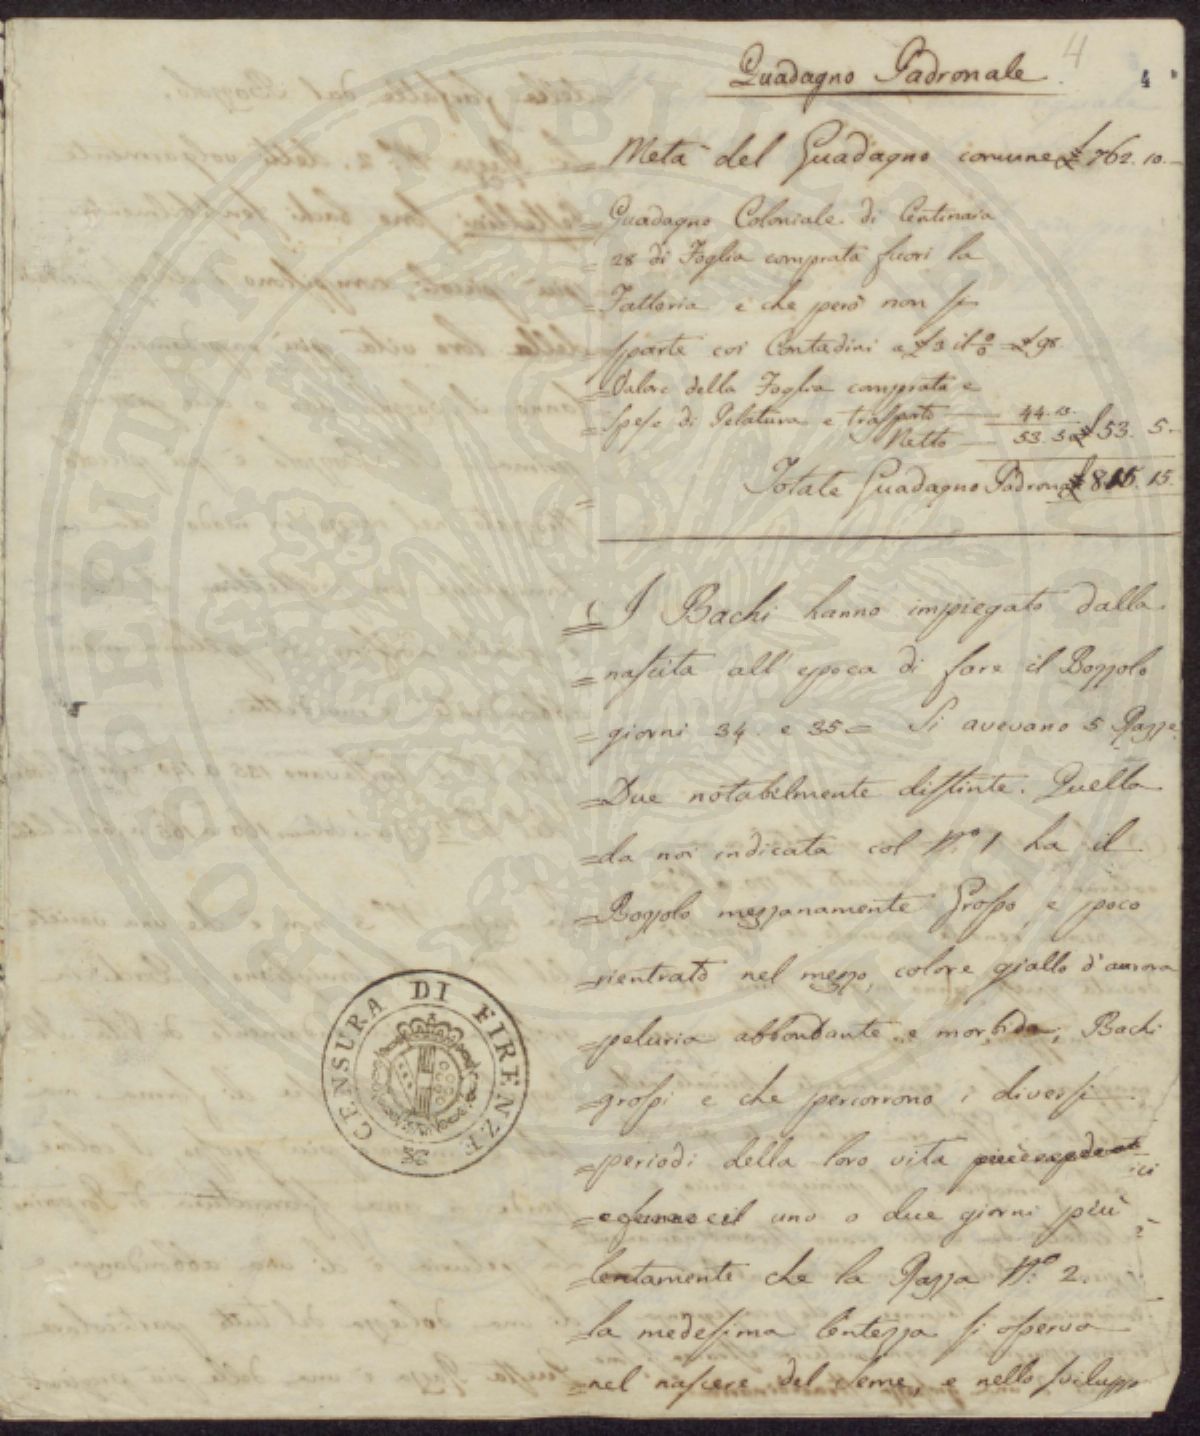 4
Guadagno Padronale.
4
Metà del Guadagno comune £ 762. 10.
Guadagno Coloniale di Centinaia
28 di Foglia comprata fuori la
Fattoria e che però non si
sparte coi Contadini a £ 3 il % = £ 98.
Valore della Foglia comprata e
Spese di Pelatura e trasporto — 44. 15.
Netto — 53. 5 £ 53. 5.
Totale Guadagno Padronale £ 815. 15.
I Bachi hanno impiegato dalla
nascita all'epoca di fare il Bozzolo
giorni 34. e 35 = Si avevano 5 Razze
Due notabilmente distinte. Quella
da noi indicata col N.º 1 ha il
Bozzolo mezzanamente Grosso, e poco
rientrato nel mezzo, colore giallo d'aurora
peluria abbondante e morbida, Bachi
grossi e che percorrono i diversi
periodi della loro vita
uno o due giorni più
lentamente che la Razza N.º 2.
la medesima lentezza si osserva
nel nascere del Seme, e nello sviluppo
CENSURA DI FIRENZE